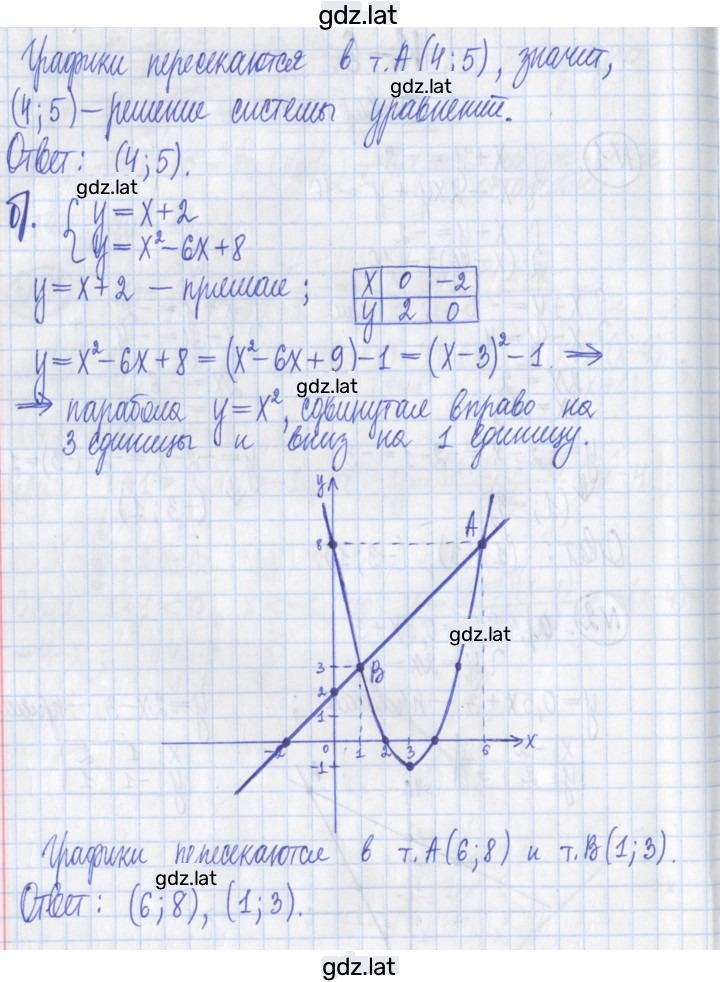 gdz.lat
Графики пересекаются в т.А(4;5), значит,
gdz.lat
(4;5) – решение системы уравнений.
Ответ: (4;5).
gdz.lat
б). { y = x + 2
y = x² - 6x + 8
y = x + 2 – прямая;
x 0 -2
y 2 0
y = x² - 6x + 8 = (x² - 6x + 9) - 1 = (x - 3)² - 1 ⇒
gdz.lat
⇒ парабола y = x², сдвинутая вправо на
3 единицы и вниз на 1 единицу.
y
8 A
gdz.lat
3 B
2
1
-2 0 1 2 3 6 x
-1
Графики пересекаются в т.А(6;8) и т.В(1;3).
gdz.lat
Ответ: (6;8), (1;3).
gdz.lat